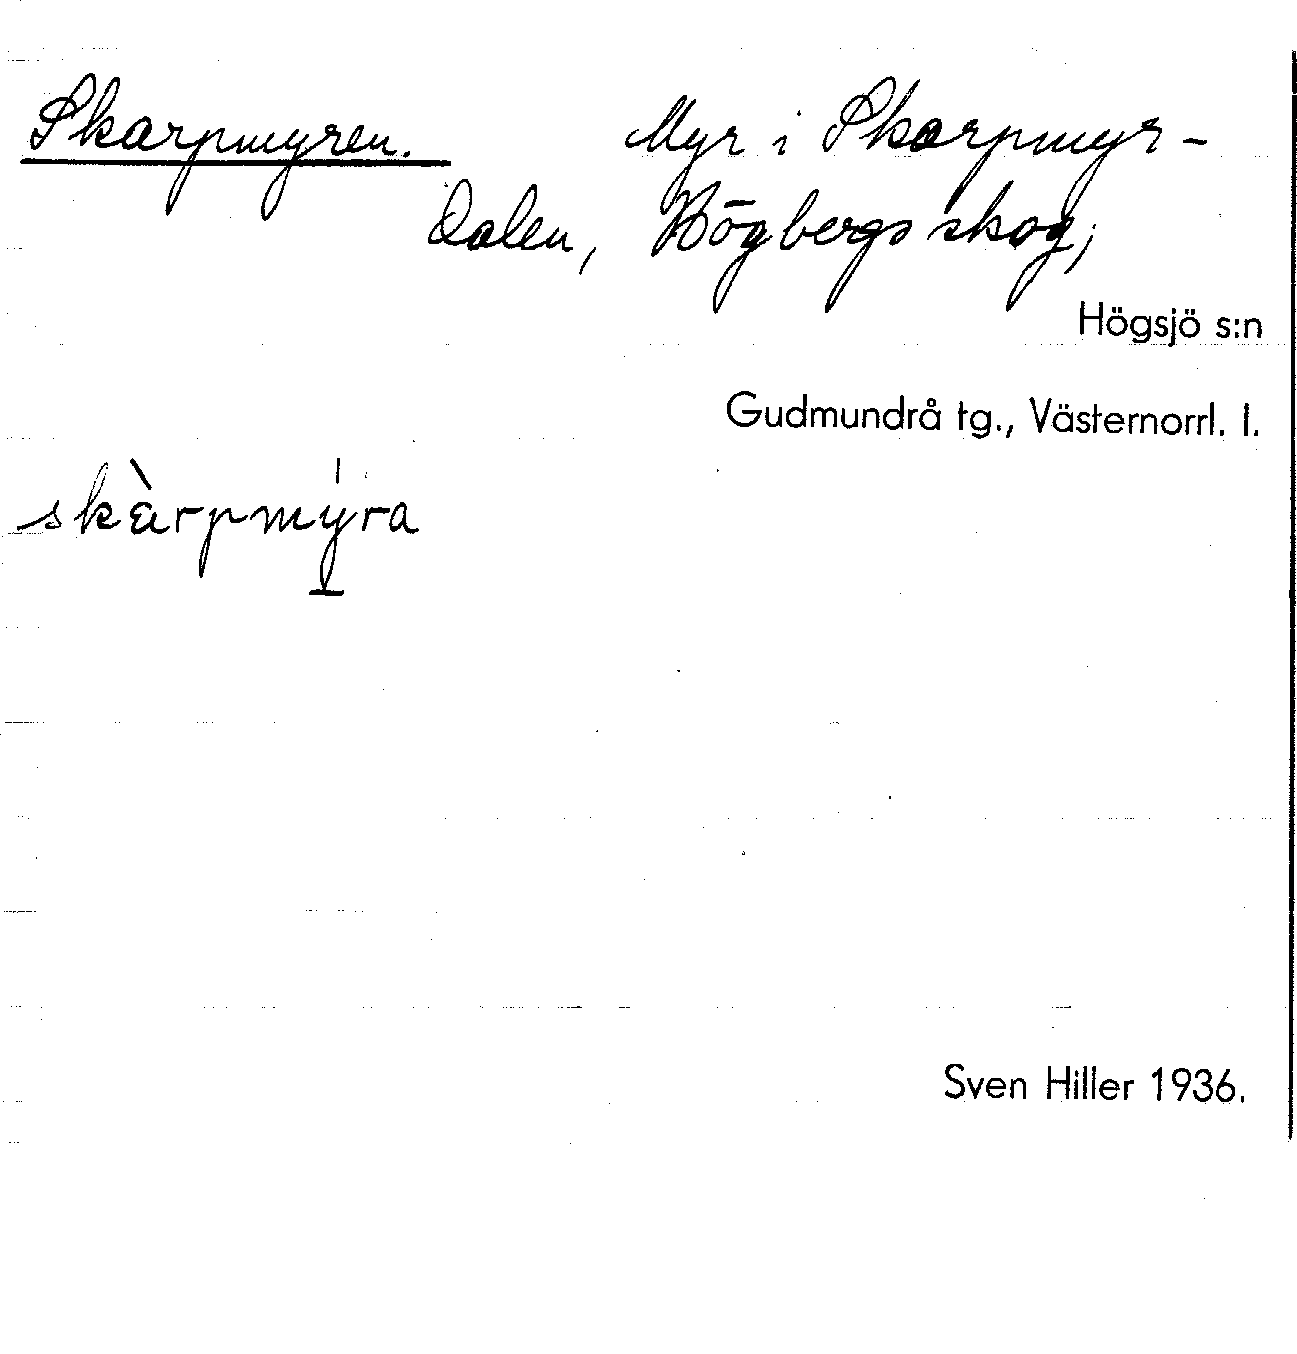 Skarpmyren. Myr i Skarpmyr-
dalen, Högbergsskog,
Högsjö s:n
Gudmundrå tg., Västernorrl. l.
skàrpmýra
Sven Hiller 1936.